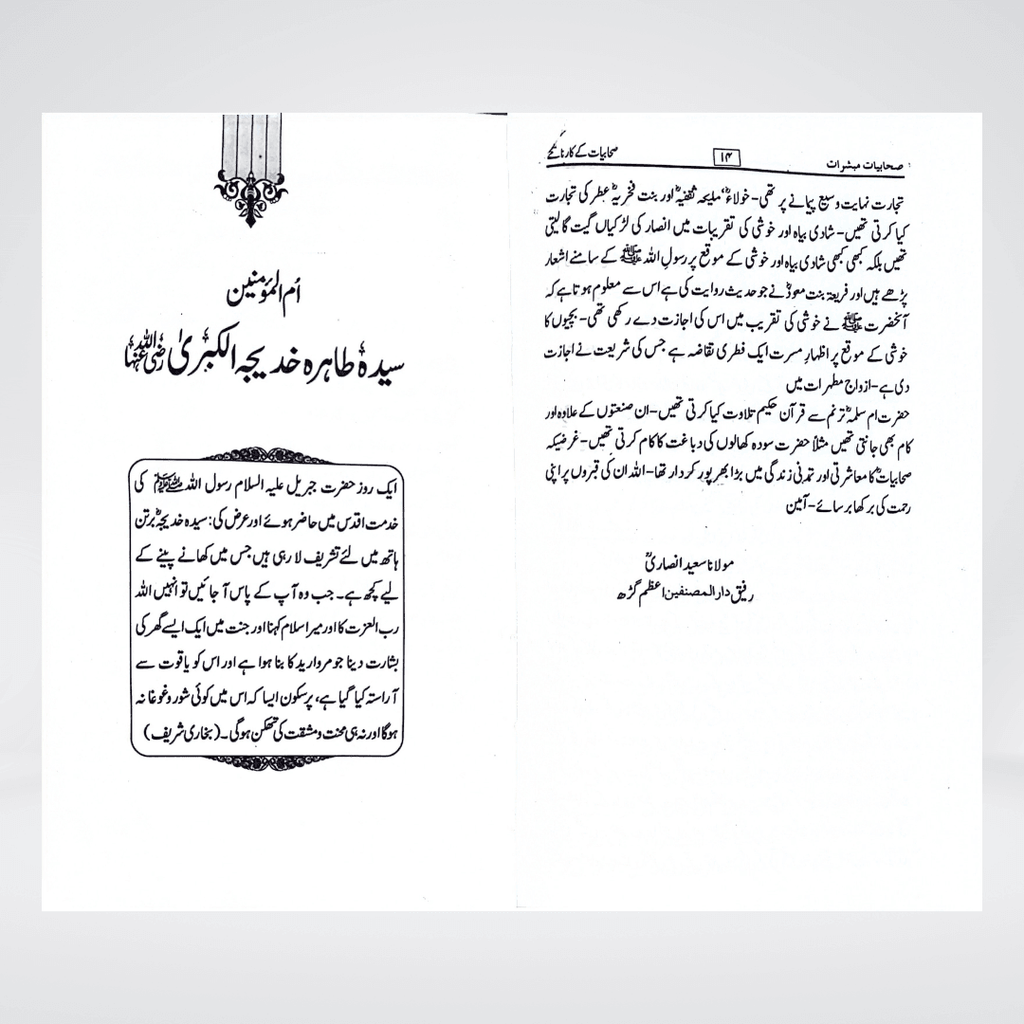 صحابیات مبشرات
۱۴
صحابیات کے کارنامے
تجارت نہایت وسیع پیمانے پر تھی۔ خولاءؓ، ملیحہ ثقفیہؓ اور بنت فخریہؓ عطر کی تجارت
کیا کرتی تھیں۔ شادی بیاہ اور خوشی کی تقریبات میں انصار کی لڑکیاں گیت گا لیتی
تھیں بلکہ کبھی کبھی شادی بیاہ اور خوشی کے موقع پر رسول اللہ ﷺ کے سامنے اشعار
پڑھے ہیں اور فریعہ بنت معوذؓ نے جو حدیث روایت کی ہے اس سے معلوم ہوتا ہے کہ
آنحضرت ﷺ نے خوشی کی تقریب میں اس کی اجازت دے رکھی تھی۔ بچیوں کا
خوشی کے موقع پر اظہارِ مسرت ایک فطری تقاضہ ہے جس کی شریعت نے اجازت
دی ہے۔ ازواج مطہرات میں
حضرت ام سلمہؓ ترنم سے قرآن حکیم تلاوت کیا کرتی تھیں۔ ان صنعتوں کے علاوہ اور
کام بھی جانتی تھیں مثلاً حضرت سودہ کھالوں کی دباغت کا کام کرتی تھیں۔ غرضیکہ
صحابیاتؓ کا معاشرتی اور تمدنی زندگی میں بڑا بھرپور کردار تھا۔ اللہ ان کی قبروں پر اپنی
رحمت کی برکھا برسائے۔ آمین
مولانا سعید انصاریؒ
رفیق دارالمصنفین اعظم گڑھ
اُم المؤمنین
سیدہ طاہرہ خدیجہ الکبریٰ رضی اللہ عنہا
ایک روز حضرت جبریل علیہ السلام رسول اللہ ﷺ کی
خدمت اقدس میں حاضر ہوئے اور عرض کی: سیدہ خدیجہؓ برتن
ہاتھ میں لئے تشریف لا رہی ہیں جس میں کھانے پینے کے
لیے کچھ ہے۔ جب وہ آپ کے پاس آ جائیں تو انہیں اللہ
رب العزت کا اور میرا سلام کہنا اور جنت میں ایک ایسے گھر کی
بشارت دینا جو مروارید کا بنا ہوا ہے اور اس کو یاقوت سے
آراستہ کیا گیا ہے، پرسکون ایسا کہ اس میں کوئی شور و غوغا نہ
ہوگا اور نہ ہی محنت و مشقت کی تھکن ہوگی۔ (بخاری شریف)